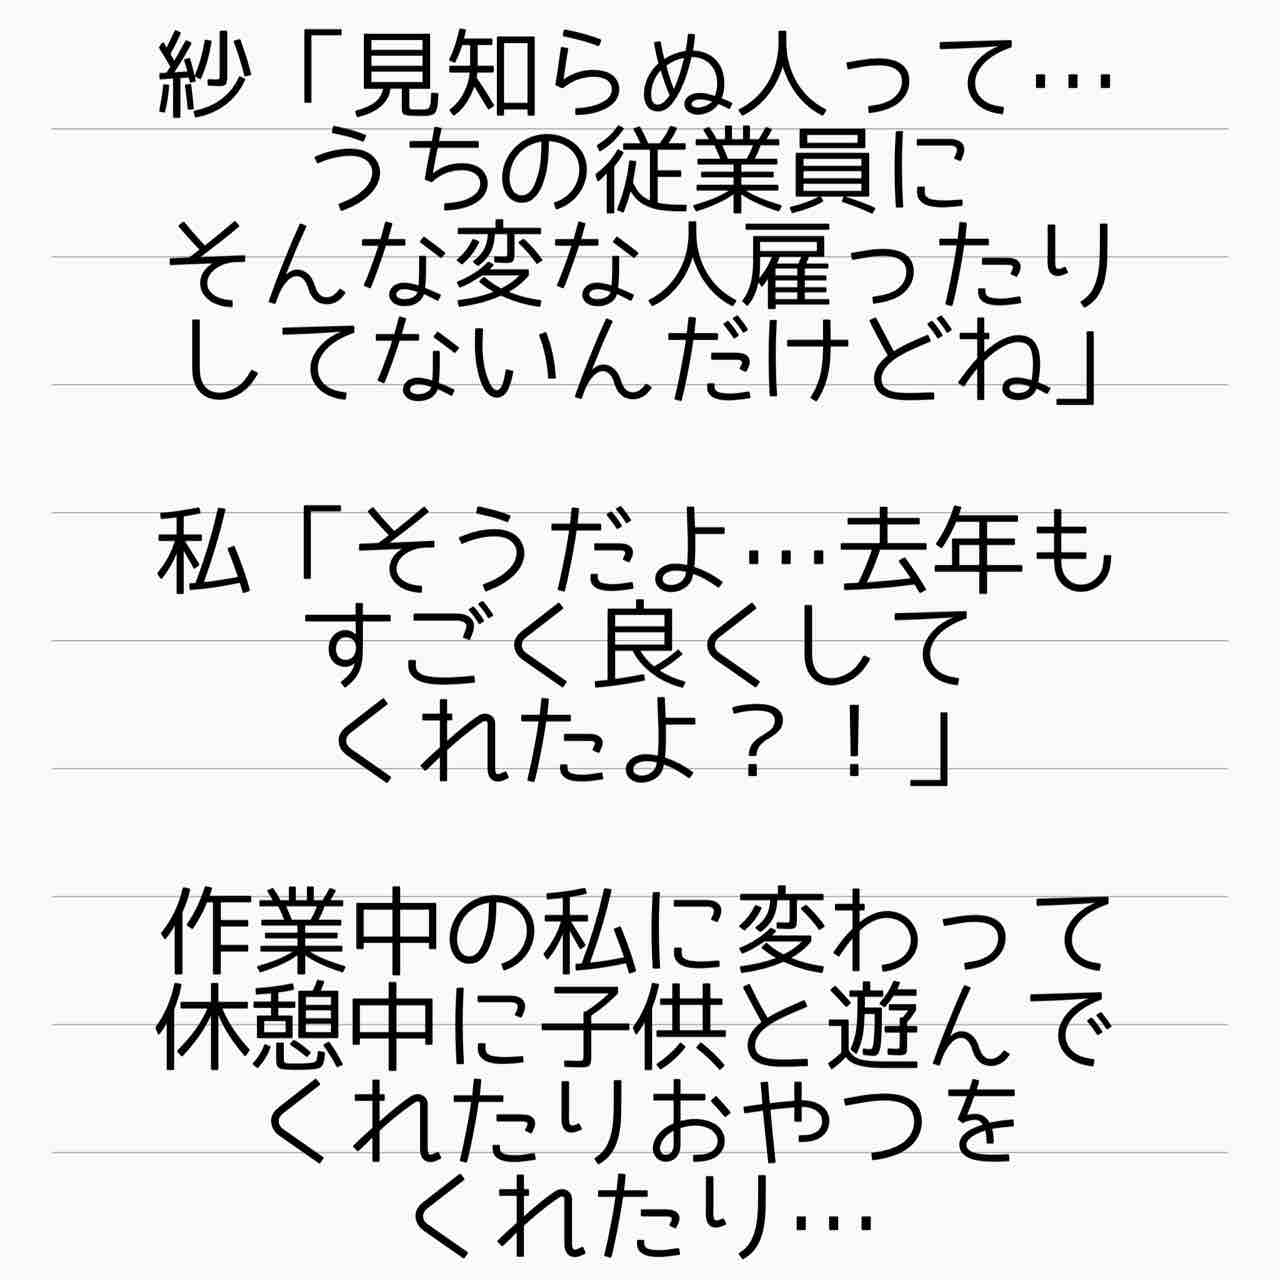 紗「見知らぬ人って…
うちの従業員に
そんな変な人雇ったり
してないんだけどね」
私「そうだよ…去年も
すごく良くして
くれたよ？！」
作業中の私に変わって
休憩中に子供と遊んで
くれたりおやつを
くれたり…